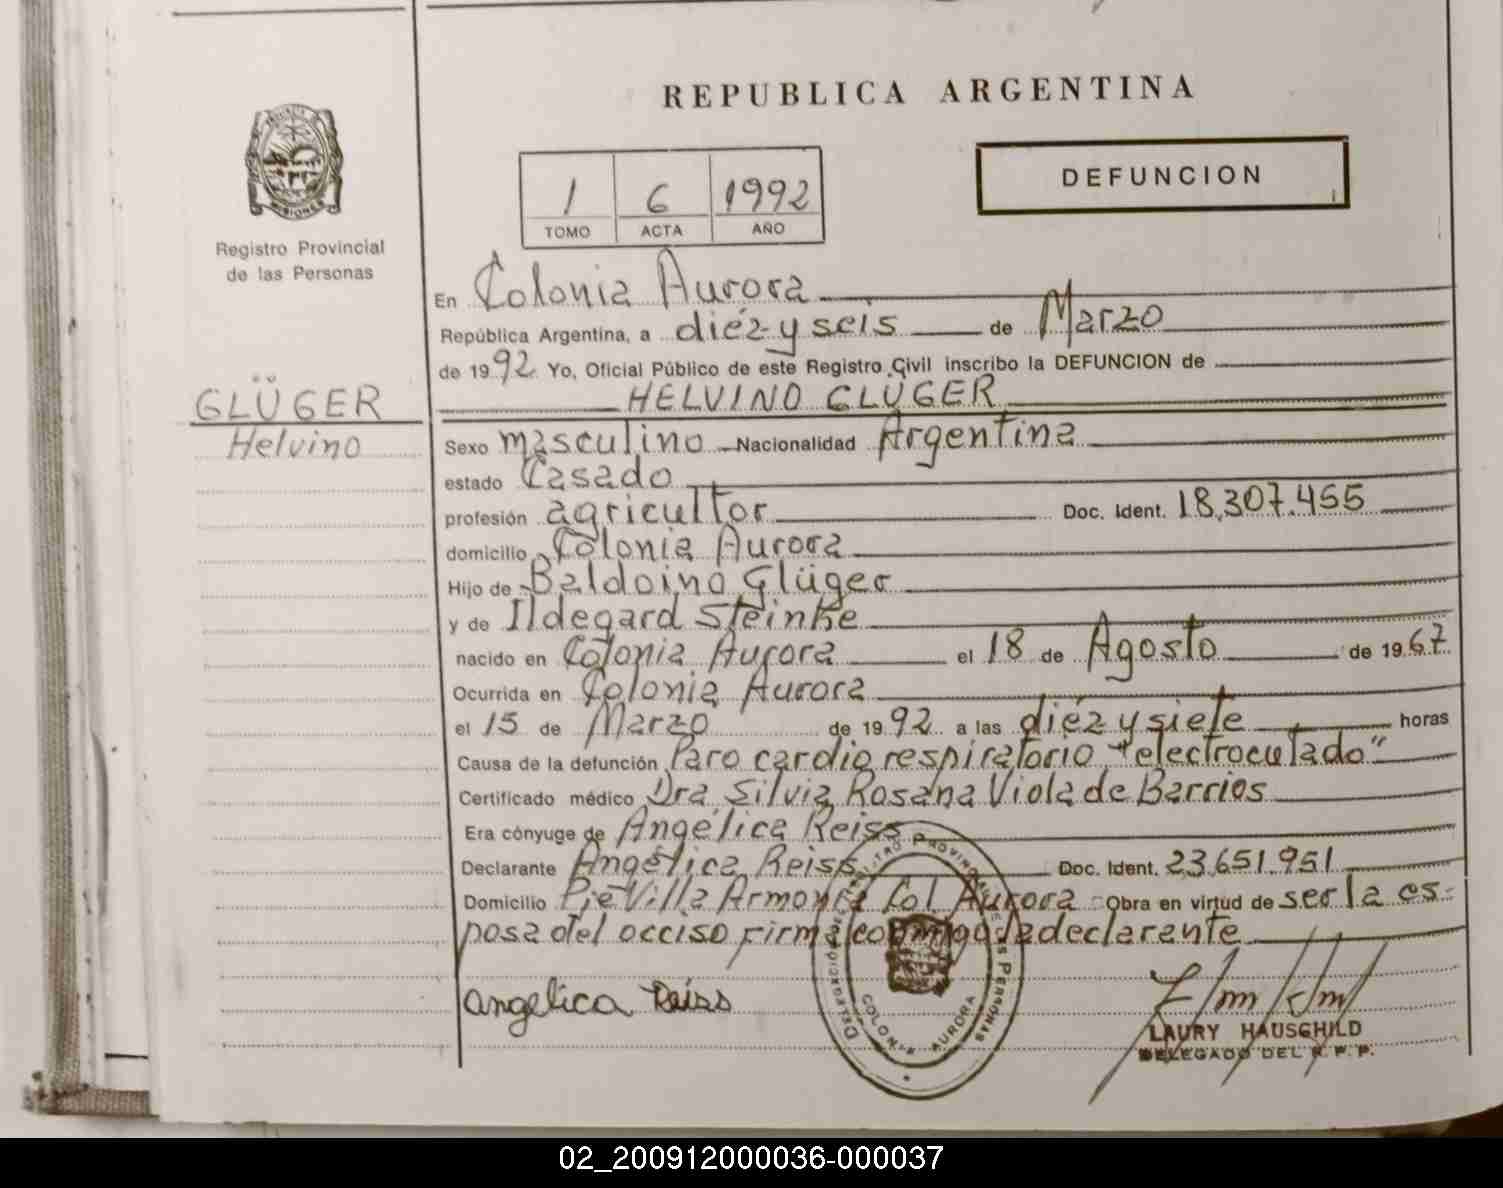 REPUBLICA ARGENTINA
DEFUNCION
1 6 1992
TOMO ACTA AÑO
MISIONES
Registro Provincial
de las Personas
GLÜGER
Helvino
En Colonia Aurora
República Argentina, a diéz y seis de Marzo
de 1992 Yo, Oficial Público de este Registro Civil inscribo la DEFUNCION de
HELVINO GLÜGER
Sexo masculino Nacionalidad Argentina
estado Casado
profesión agricultor Doc. Ident. 18.307.455
domicilio Colonia Aurora
Hijo de Baldoino Glüger
y de Ildegard Steinke
nacido en Colonia Aurora el 18 de Agosto de 1967
Ocurrida en Colonia Aurora
el 15 de Marzo de 1992 a las diéz y siete horas
Causa de la defunción Paro cardio respiratorio "electrocutado"
Certificado médico Dra Silvia Rosana Viola de Barrios
Era cónyuge de Angélica Reiss
Declarante Angélica Reiss Doc. Ident. 23.651.951
Domicilio Pje Villa Armonía Col Aurora Obra en virtud de ser la es-
posa del occiso firma conmigo la declarante
angelica Reiss
REGISTRO PROVINCIAL DE LAS PERSONAS
DELEGACIÓN
COLONIA AURORA
LAURY HAUSCHILD
DELEGADO DEL R. P. P.
02_200912000036-000037